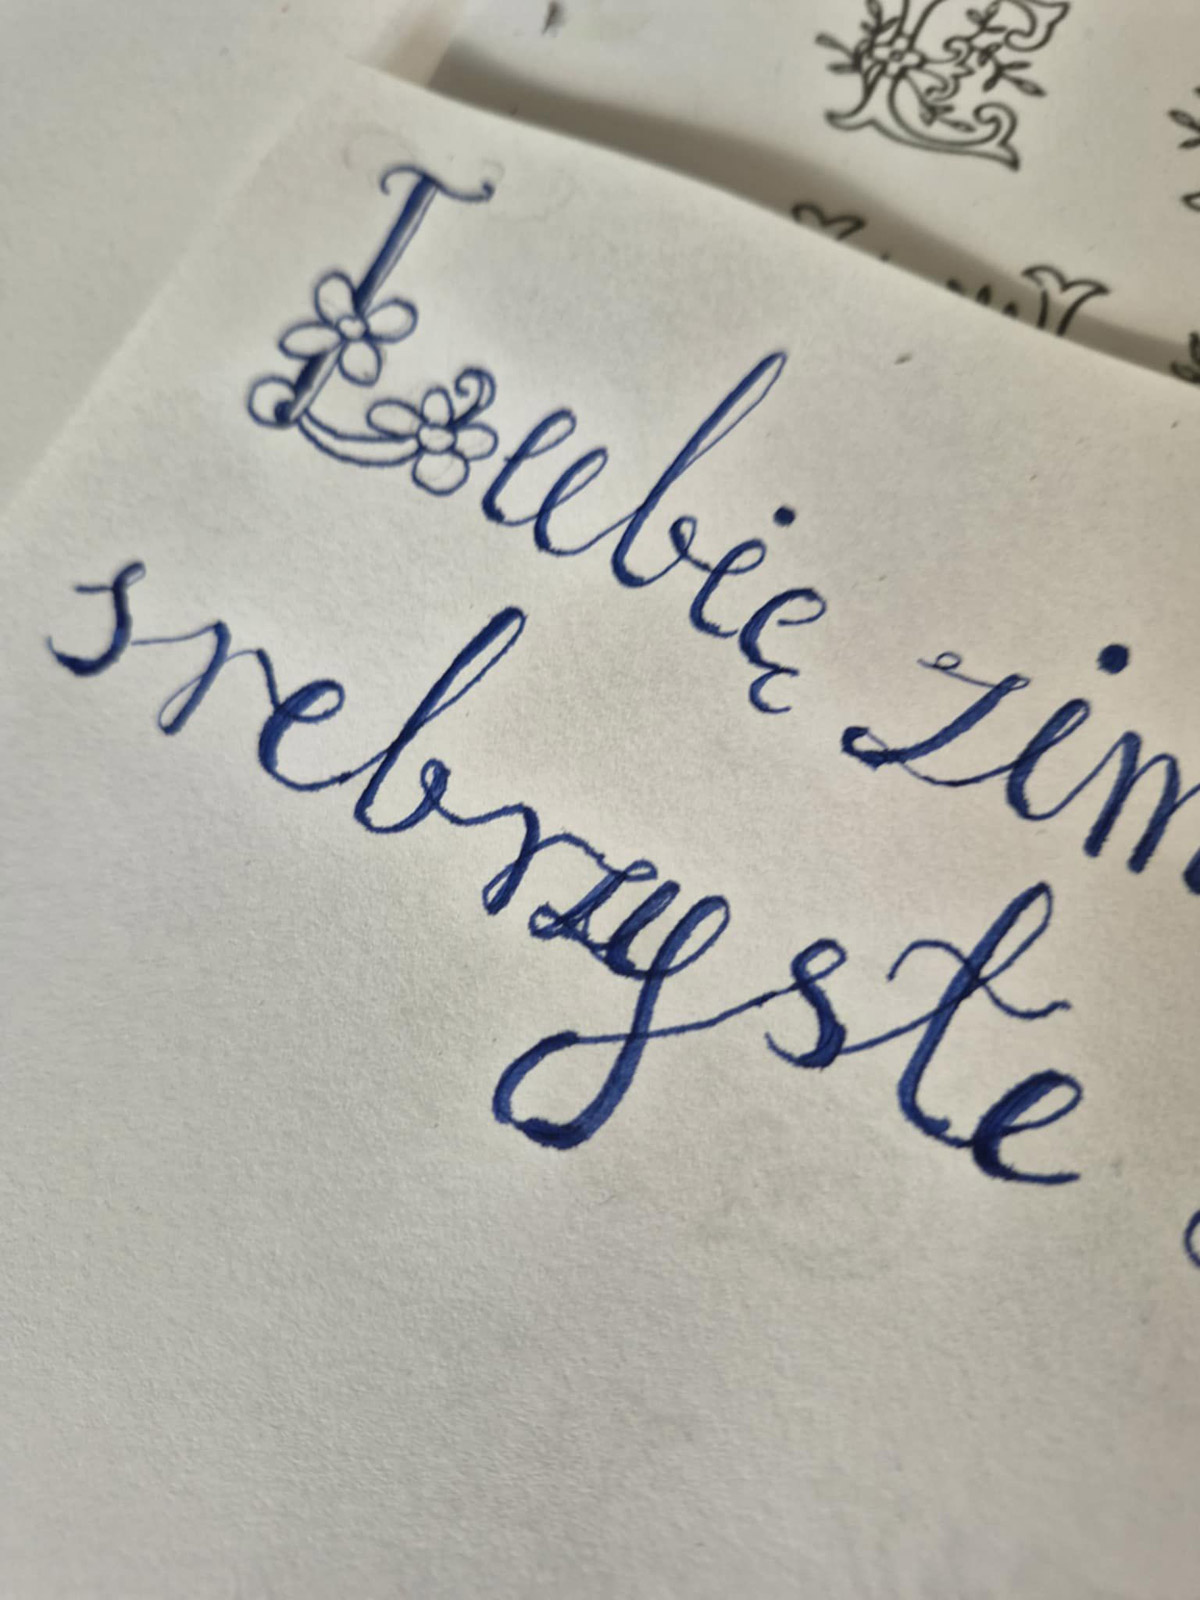 Lubię zim
srebrzyste